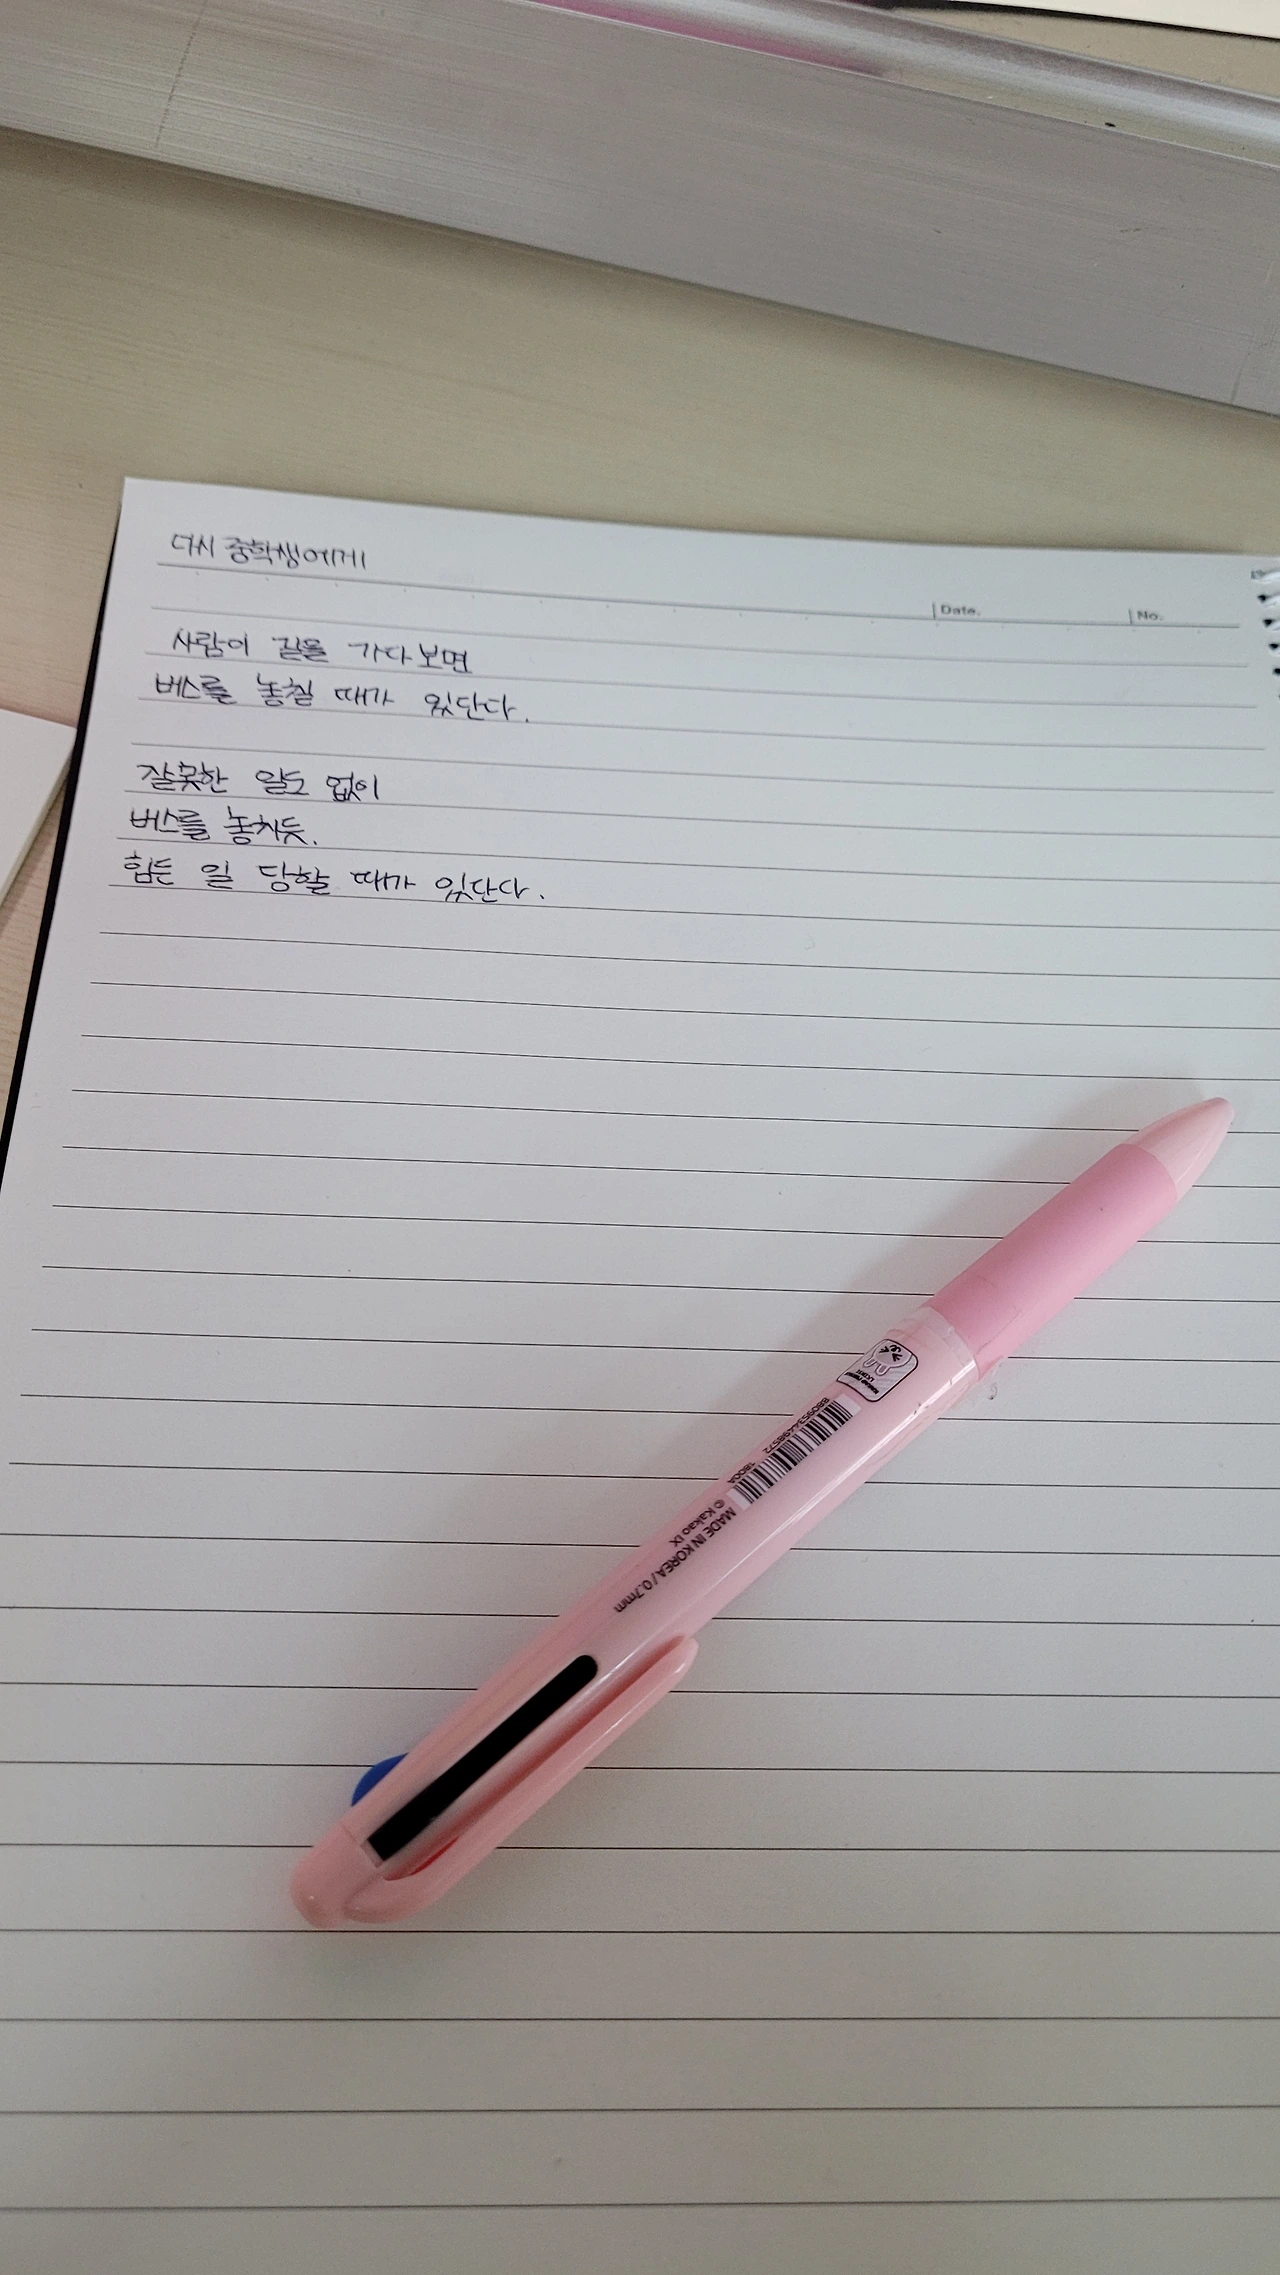 다시 중학생에게
Date.
No.
사람이 길을 가다보면
버스를 놓칠 때가 있단다.
잘못한 일도 없이
버스를 놓치듯.
힘든 일 당할 때가 있단다.
KAKAO FRIENDS
8809534498572
MADE IN KOREA / 0.7mm
© Kakao IX